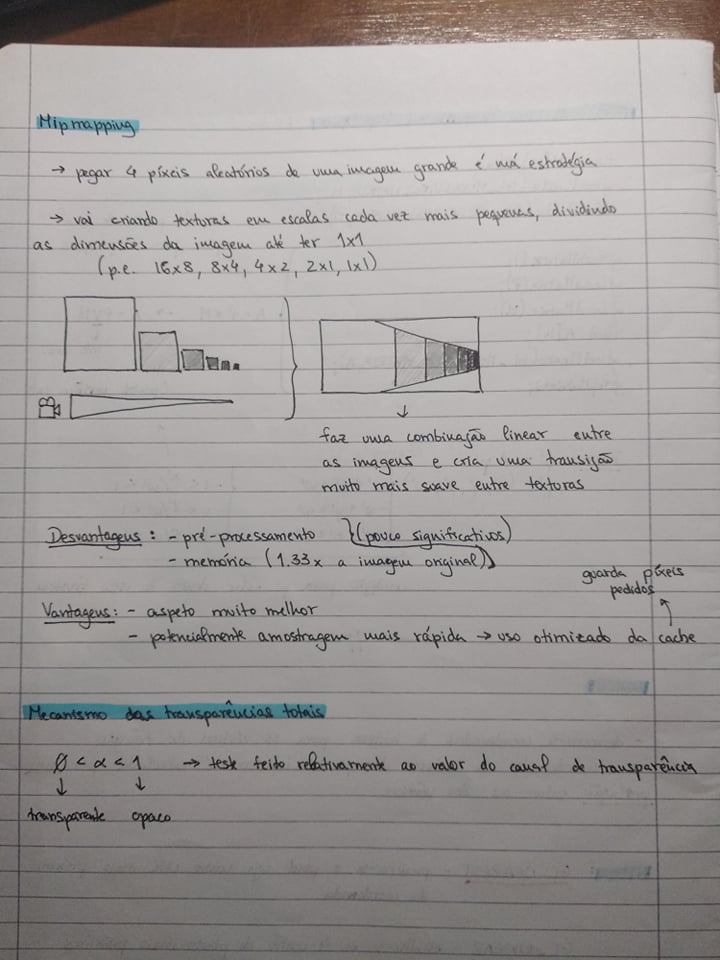 Mipmapping
→ pegar 4 píxeis aleatórios de uma imagem grande é má estratégia
→ vai criando texturas em escalas cada vez mais pequenas, dividindo
as dimensões da imagem até ter 1x1
(p.e. 16x8, 8x4, 4x2, 2x1, 1x1)
faz uma combinação linear entre
as imagens e cria uma transição
muito mais suave entre texturas
Desvantagens: - pré-processamento } (pouco significativos)
- memória (1.33x a imagem original)
guarda píxeis
pedidos
Vantagens: - aspeto muito melhor
- potencialmente amostragem mais rápida → uso otimizado da cache
Mecanismo das transparências totais
0 < α < 1 → teste feito relativamente ao valor do canal de transparência
transparente opaco